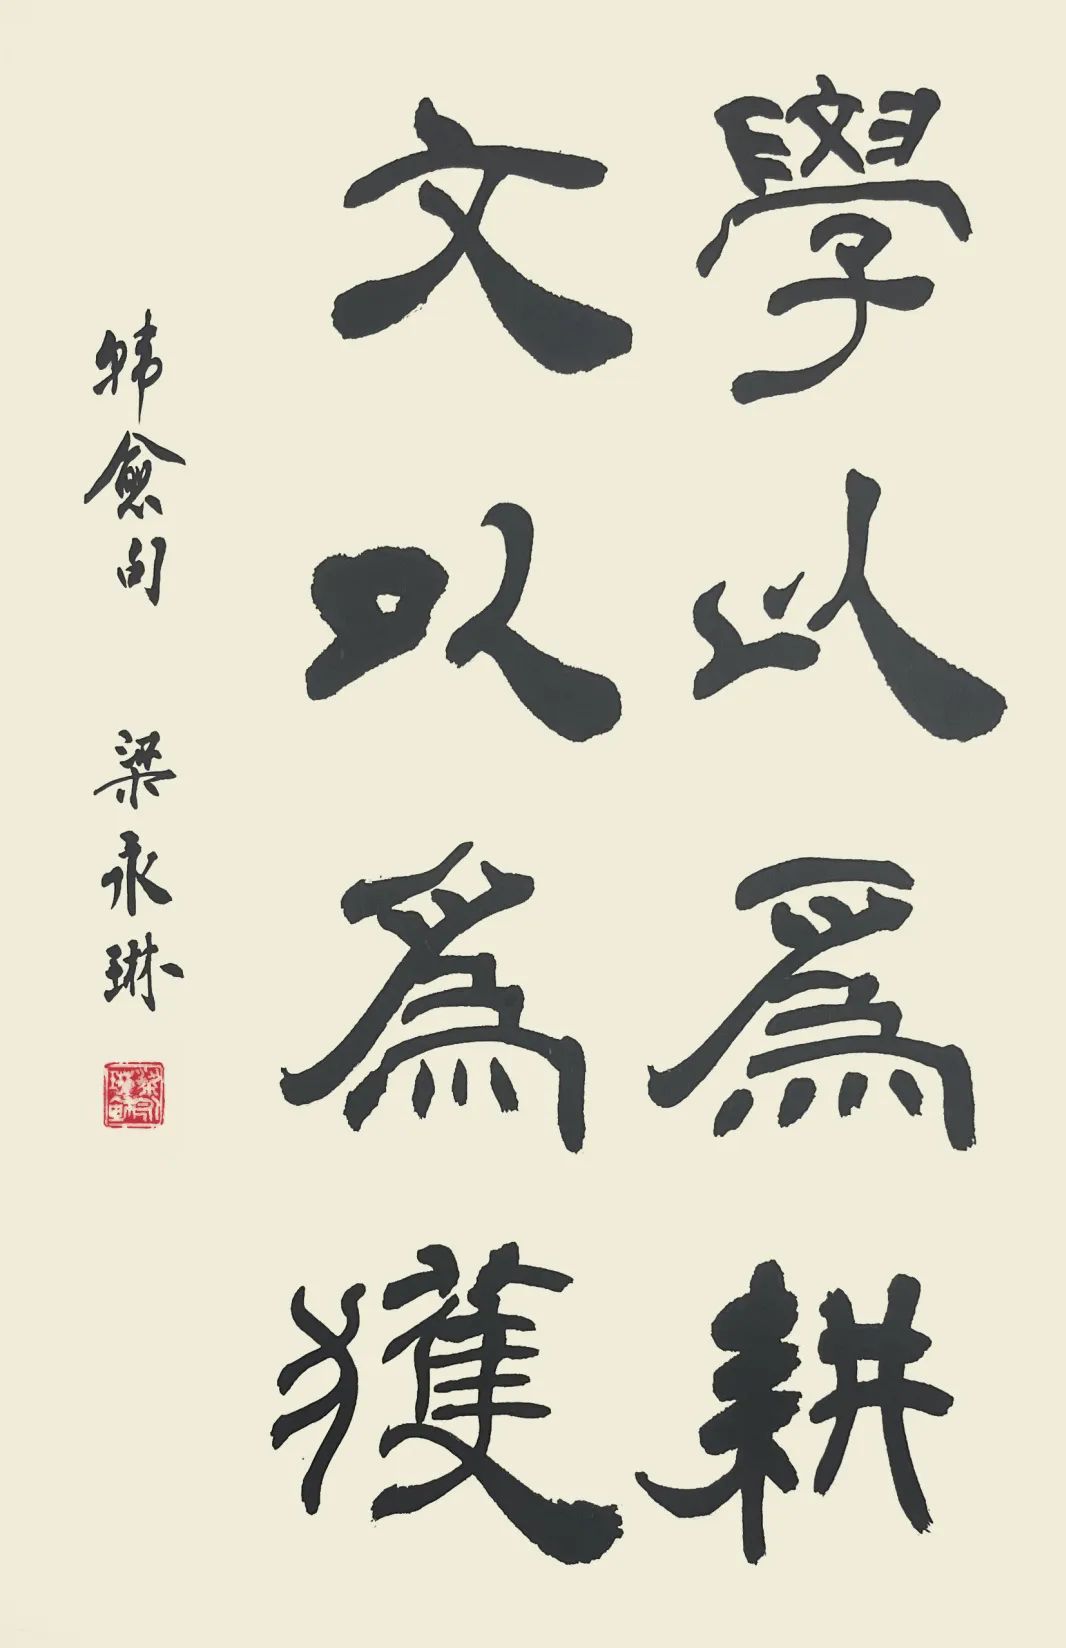 學以爲耕
文以爲獲
韩愈句 梁永琳